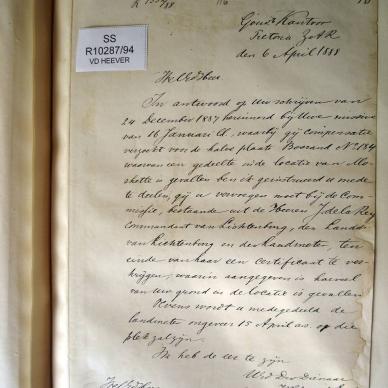 R
SS
R10287/94
VD HEEVER
Gouvts Kantoor
Pretoria ZAR
den 6 April 1888
WelEdHeer
In antwoord op Uw schrijven van
24 December 1887 herinnerd bij Uwe missive
van 16 Januari ll, waarbij gij Compensatie
verzoekt voor de halve plaats No 2184
waarvan een gedeelte in de locatie van Mo-
is gevallen ben ik geinstrueerd u mede
te deelen, gij u vervoegen moet bij de Com-
missie, bestaande uit de Heeren J de la Rey
Commandant van Lichtenburg, den Landdr
van Lichtenburg en den landmeter, ten
einde van haar een Certificaat te ver-
krijgen, waarin aangegeven is hoeveel
van uw grond in de locatie is gevallen
Tevens wordt u medegedeeld de
landmeter ongeveer 15 April as. op die
plek zal zijn.
Ik heb de eer te zijn
UEd Dw Dienaar
WelEdHeer